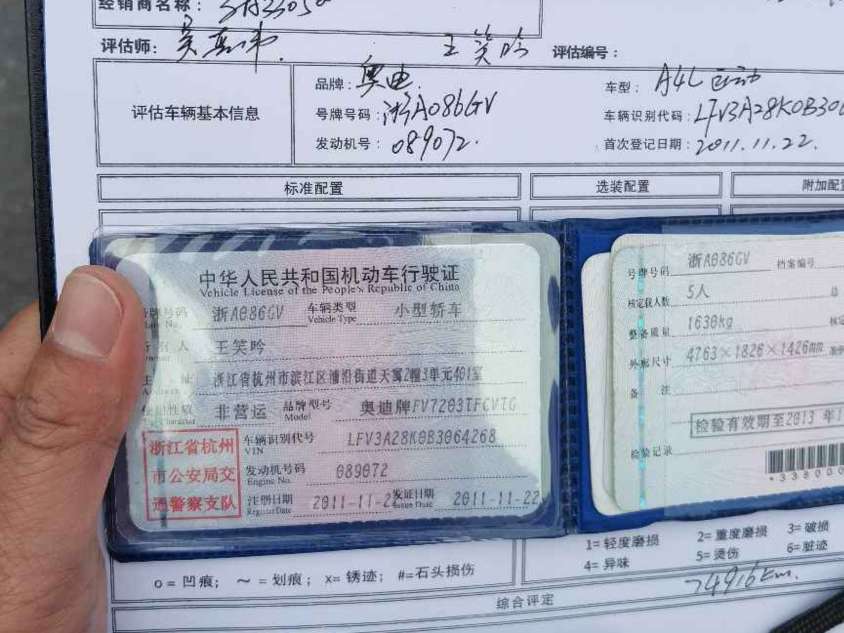 经销商名称：
评估师： 王笑吟 评估编号：
评估车辆基本信息
品牌：奥迪 车型：A4L 运动
号牌号码：浙A086GV 车辆识别代码：LFV3A28K0B306
发动机号：089072. 首次登记日期：2011.11.22.
标准配置 选装配置 附加配
中华人民共和国机动车行驶证
Vehicle License of the People's Republic of China
号牌号码 浙A086GV 车辆类型 小型轿车
Plate No. Vehicle Type
所有人 王笑吟
住址 浙江省杭州市滨江区浦沿街道天寓2幢3单元401室
使用性质 非营运 品牌型号 奥迪牌FV7203TFCVTG
Model
浙江省杭州市公安局交通警察支队
车辆识别代号 LFV3A28K0B3064268
VIN
发动机号码 089072
Engine No.
注册日期 2011-11-22 发证日期 2011-11-22
Register Date Issue Date
号牌号码 浙A086GV 档案编号
核定载人数 5人 总
整备质量 1630kg 核定
外廓尺寸 4763×1826×1426
备注
检验有效期至2013年1
检验记录
*338000
o = 凹痕； ～ = 划痕； x= 锈迹； #=石头损伤
1= 轻度磨损 2= 重度磨损 3= 破损
4= 异味 5= 烫伤 6= 脏迹
74916km.
综合评定